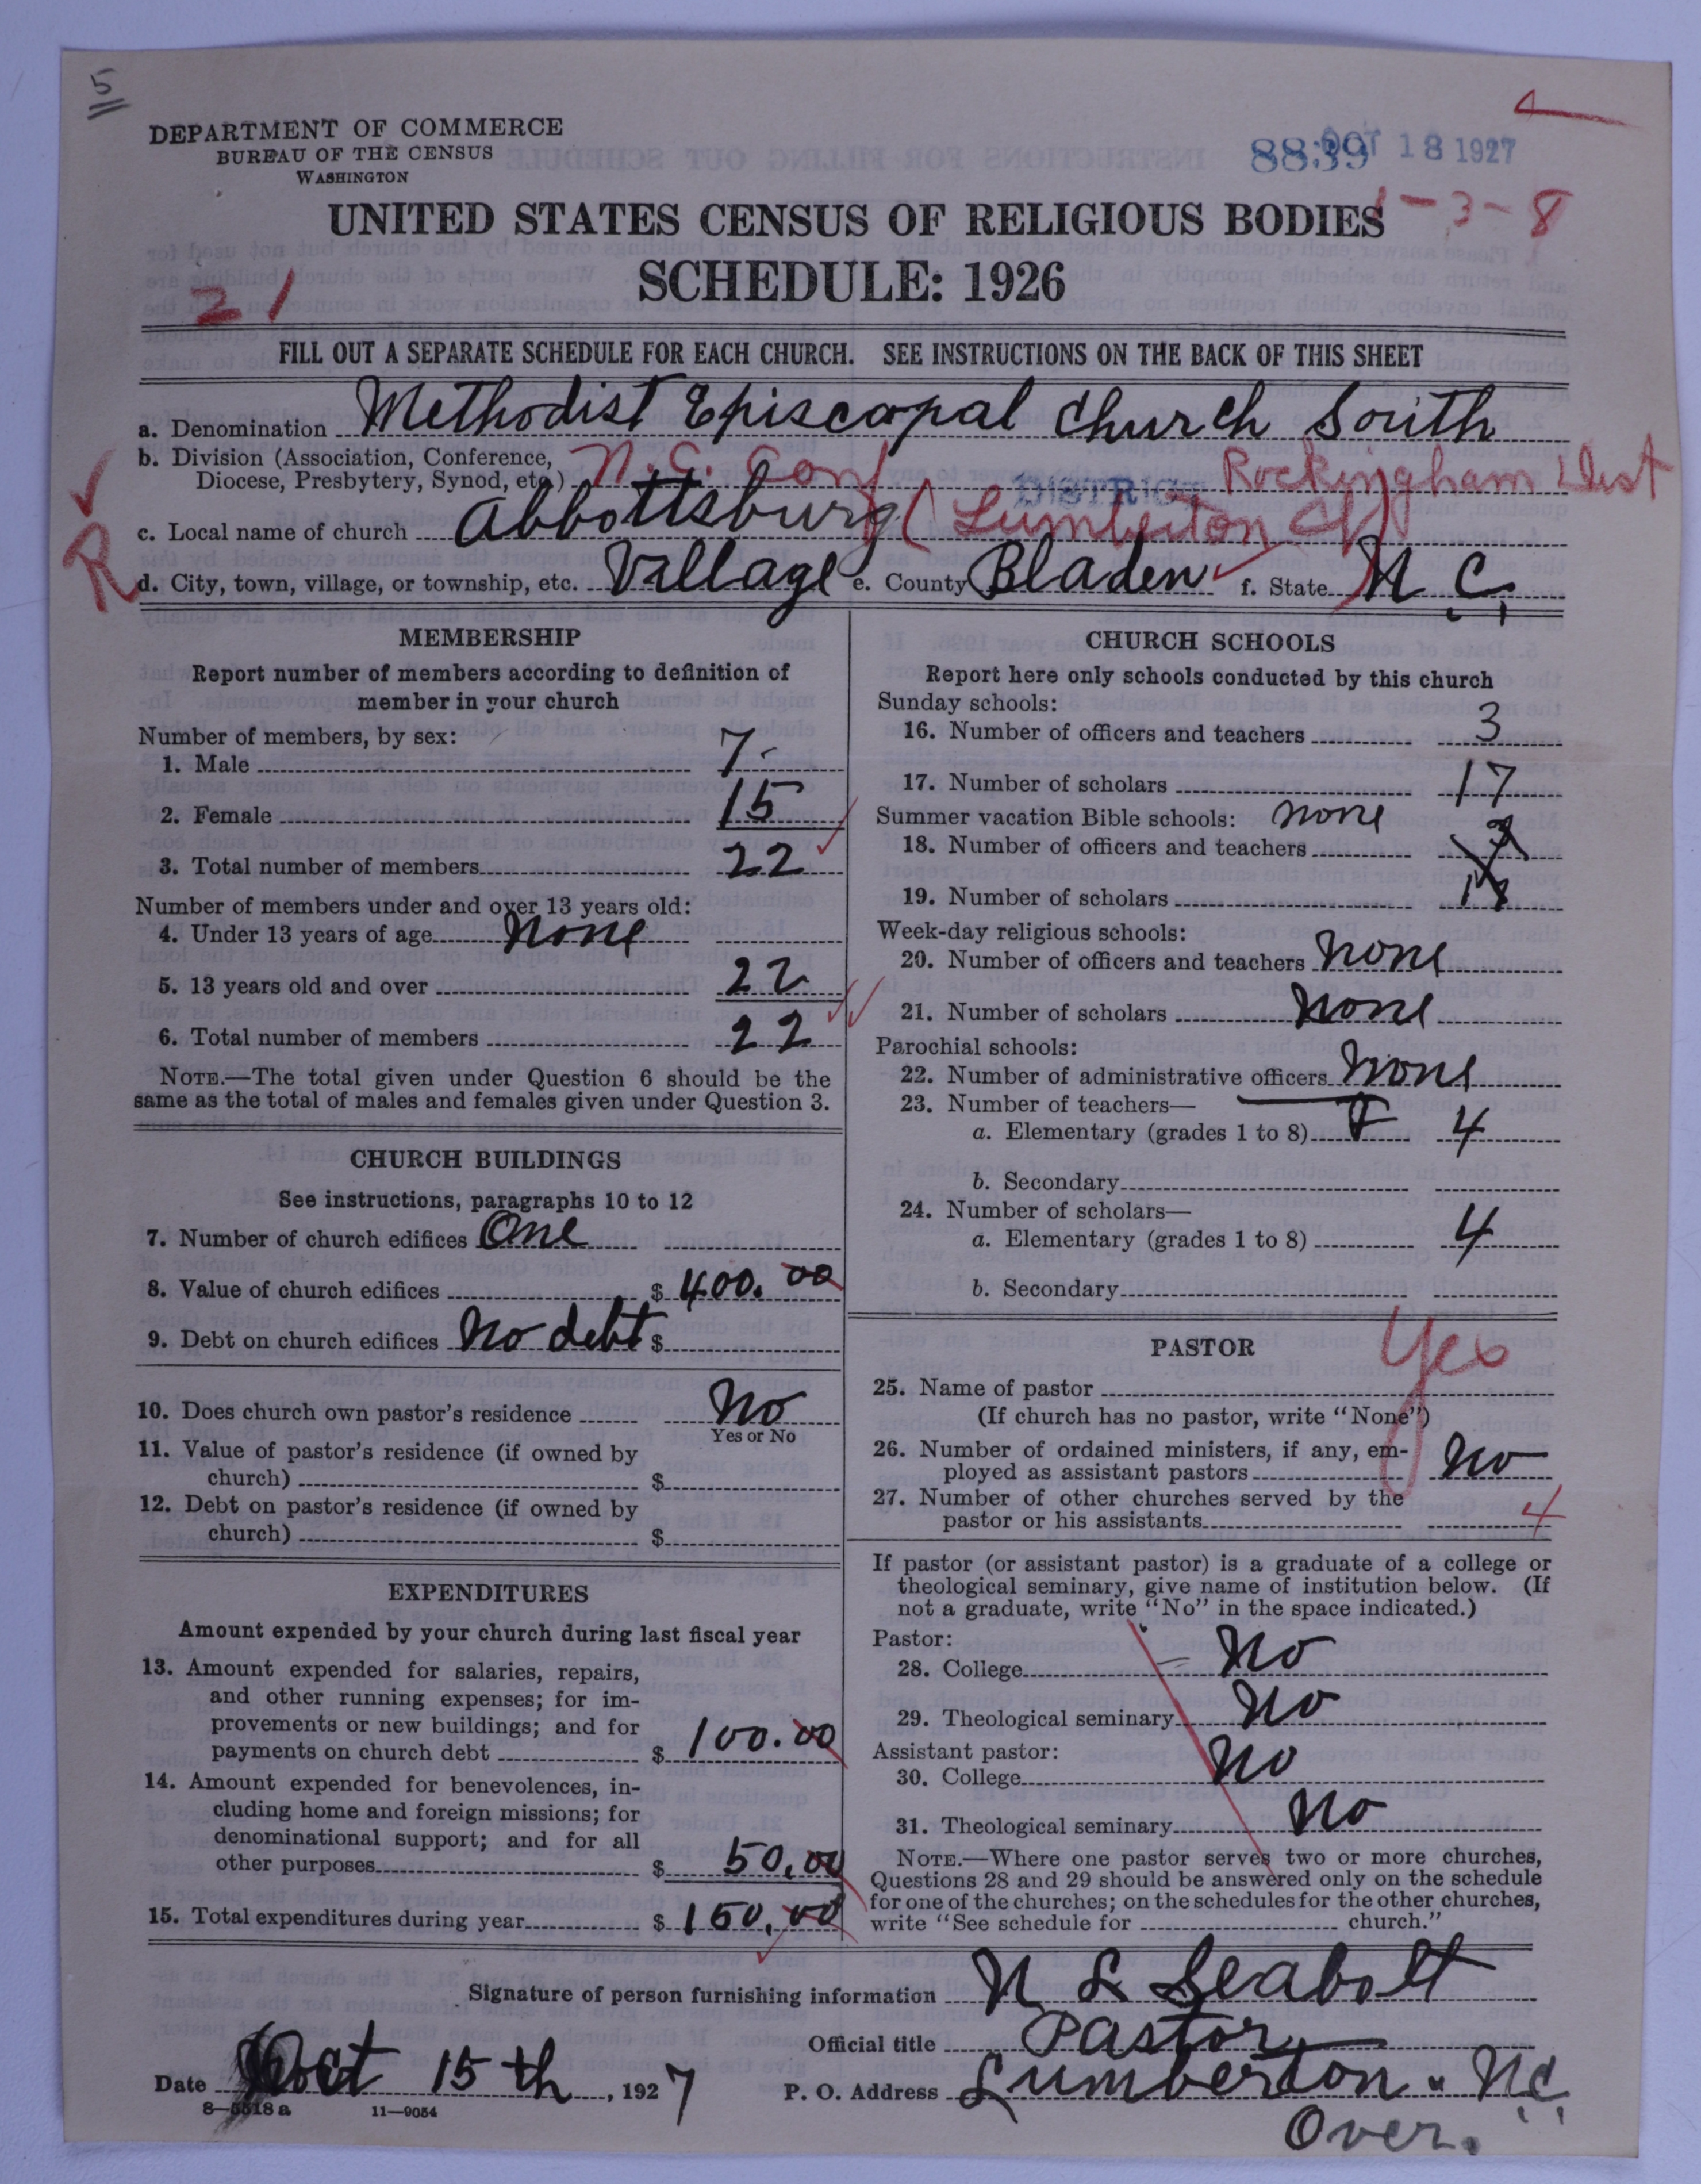 5
DEPARTMENT OF COMMERCE
BUREAU OF THE CENSUS
WASHINGTON
8839 OCT 18 1927
1-3-8
UNITED STATES CENSUS OF RELIGIOUS BODIES
SCHEDULE: 1926
21
FILL OUT A SEPARATE SCHEDULE FOR EACH CHURCH. SEE INSTRUCTIONS ON THE BACK OF THIS SHEET
a. Denomination Methodist Episcopal Church South
b. Division (Association, Conference, Diocese, Presbytery, Synod, etc.) N.C. Conf DISTRICT Rockingham Dist
c. Local name of church Abbottsburg (Lumberton Ct)
R
d. City, town, village, or township, etc. Village e. County Bladen f. State N.C.
MEMBERSHIP
Report number of members according to definition of
member in your church
Number of members, by sex:
1. Male 7
2. Female 15
3. Total number of members 22
Number of members under and over 13 years old:
4. Under 13 years of age None
5. 13 years old and over 22
6. Total number of members 22
NOTE.—The total given under Question 6 should be the
same as the total of males and females given under Question 3.
CHURCH BUILDINGS
See instructions, paragraphs 10 to 12
7. Number of church edifices One
8. Value of church edifices $ 400.00
9. Debt on church edifices No debt $
10. Does church own pastor's residence No
Yes or No
11. Value of pastor's residence (if owned by
church) $
12. Debt on pastor's residence (if owned by
church) $
EXPENDITURES
Amount expended by your church during last fiscal year
13. Amount expended for salaries, repairs,
and other running expenses; for im-
provements or new buildings; and for
payments on church debt $ 100.00
14. Amount expended for benevolences, in-
cluding home and foreign missions; for
denominational support; and for all
other purposes $ 50.00
15. Total expenditures during year $ 150.00
CHURCH SCHOOLS
Report here only schools conducted by this church
Sunday schools:
16. Number of officers and teachers 3
17. Number of scholars 17
Summer vacation Bible schools: None
18. Number of officers and teachers
19. Number of scholars
Week-day religious schools:
20. Number of officers and teachers None
21. Number of scholars None
Parochial schools:
22. Number of administrative officers None
23. Number of teachers—
a. Elementary (grades 1 to 8) 4
b. Secondary
24. Number of scholars—
a. Elementary (grades 1 to 8) 4
b. Secondary
PASTOR
Yes
25. Name of pastor
(If church has no pastor, write "None")
26. Number of ordained ministers, if any, em-
ployed as assistant pastors No
27. Number of other churches served by the
pastor or his assistants 4
If pastor (or assistant pastor) is a graduate of a college or
theological seminary, give name of institution below. (If
not a graduate, write "No" in the space indicated.)
Pastor:
28. College No
29. Theological seminary No
Assistant pastor:
30. College No
31. Theological seminary No
NOTE.—Where one pastor serves two or more churches,
Questions 28 and 29 should be answered only on the schedule
for one of the churches; on the schedules for the other churches,
write "See schedule for church."
Signature of person furnishing information N L Seabolt
Official title Pastor
Date Oct 15th, 1927 P. O. Address Lumberton N.C.
8-5518 a 11-9054
Over.